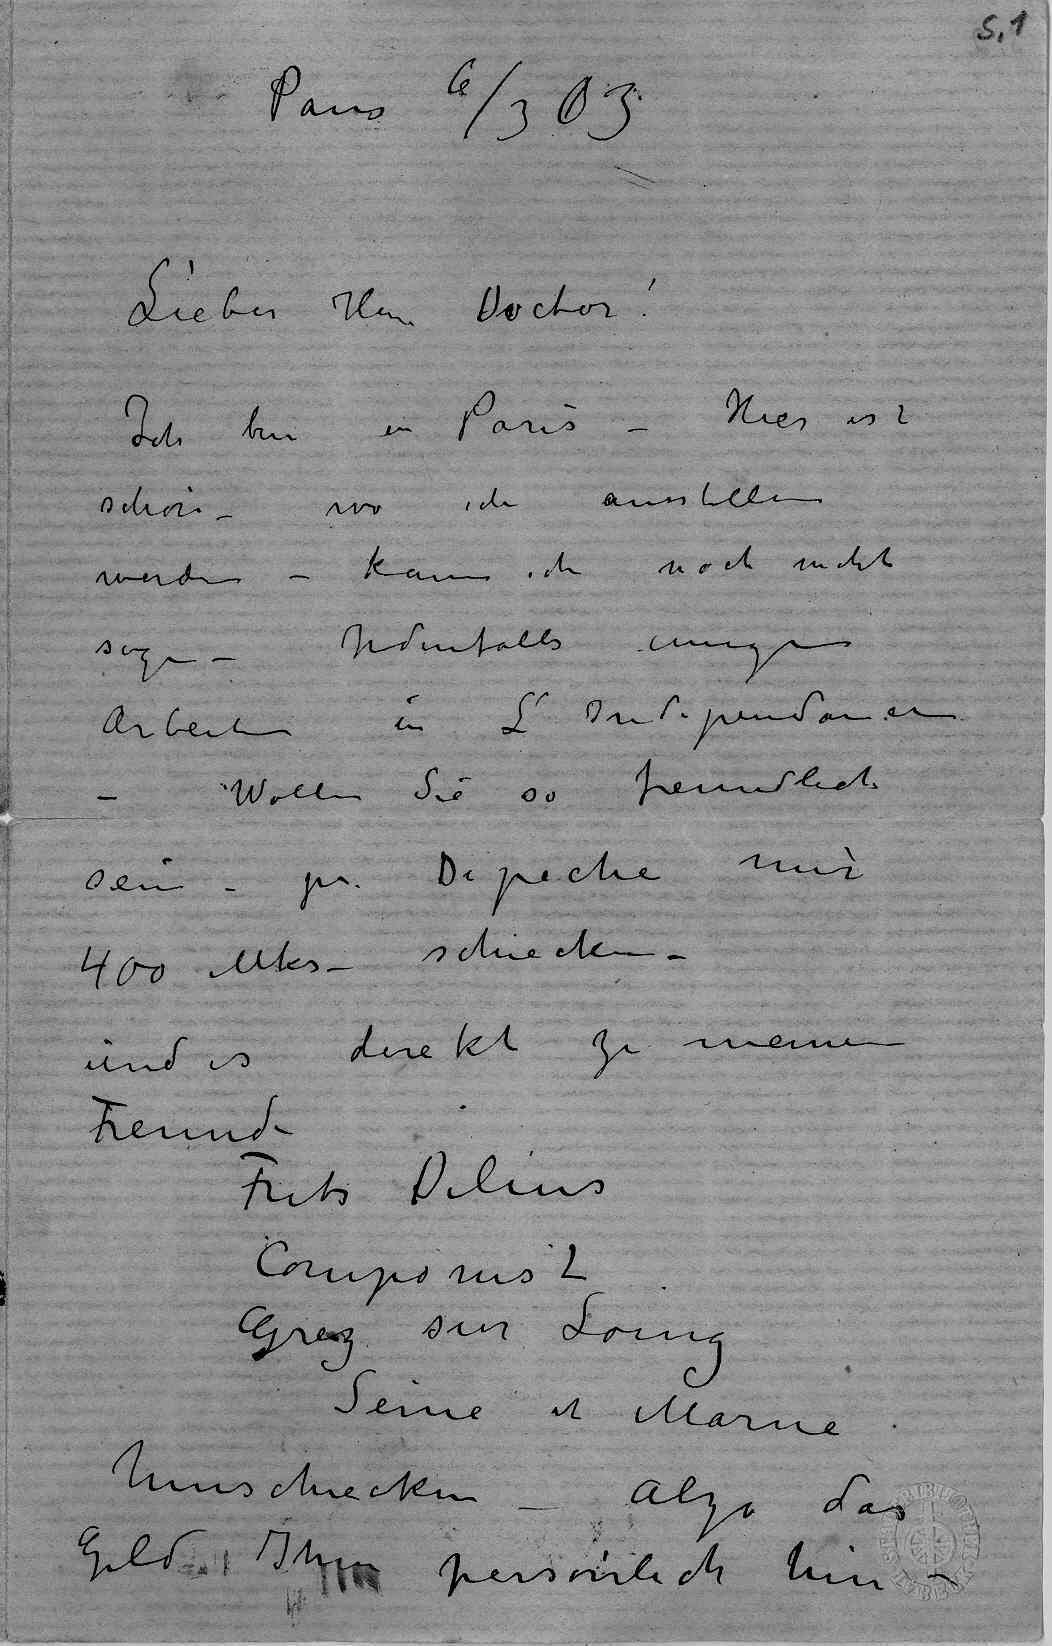 S. 1
Paris 6/3 03
Lieber Herr Doctor!
Ich bin in Paris – Hier ist
schön – wo ich ausstellen
werden – kann ich noch nicht
sagen – Jedenfalls einigen
Arbeiten in L'Independanten
– Wollen Sie so freundlich
sein – pr. Depeche mir
400 Mks – schiecken –
und es direkt zu meinen
Freund
Frits Delius
Componist
Grez sur Loing
Seine et Marne
hinschiecken – also das
Geld Ihm persönlich hin –
BIBLIOTHEK